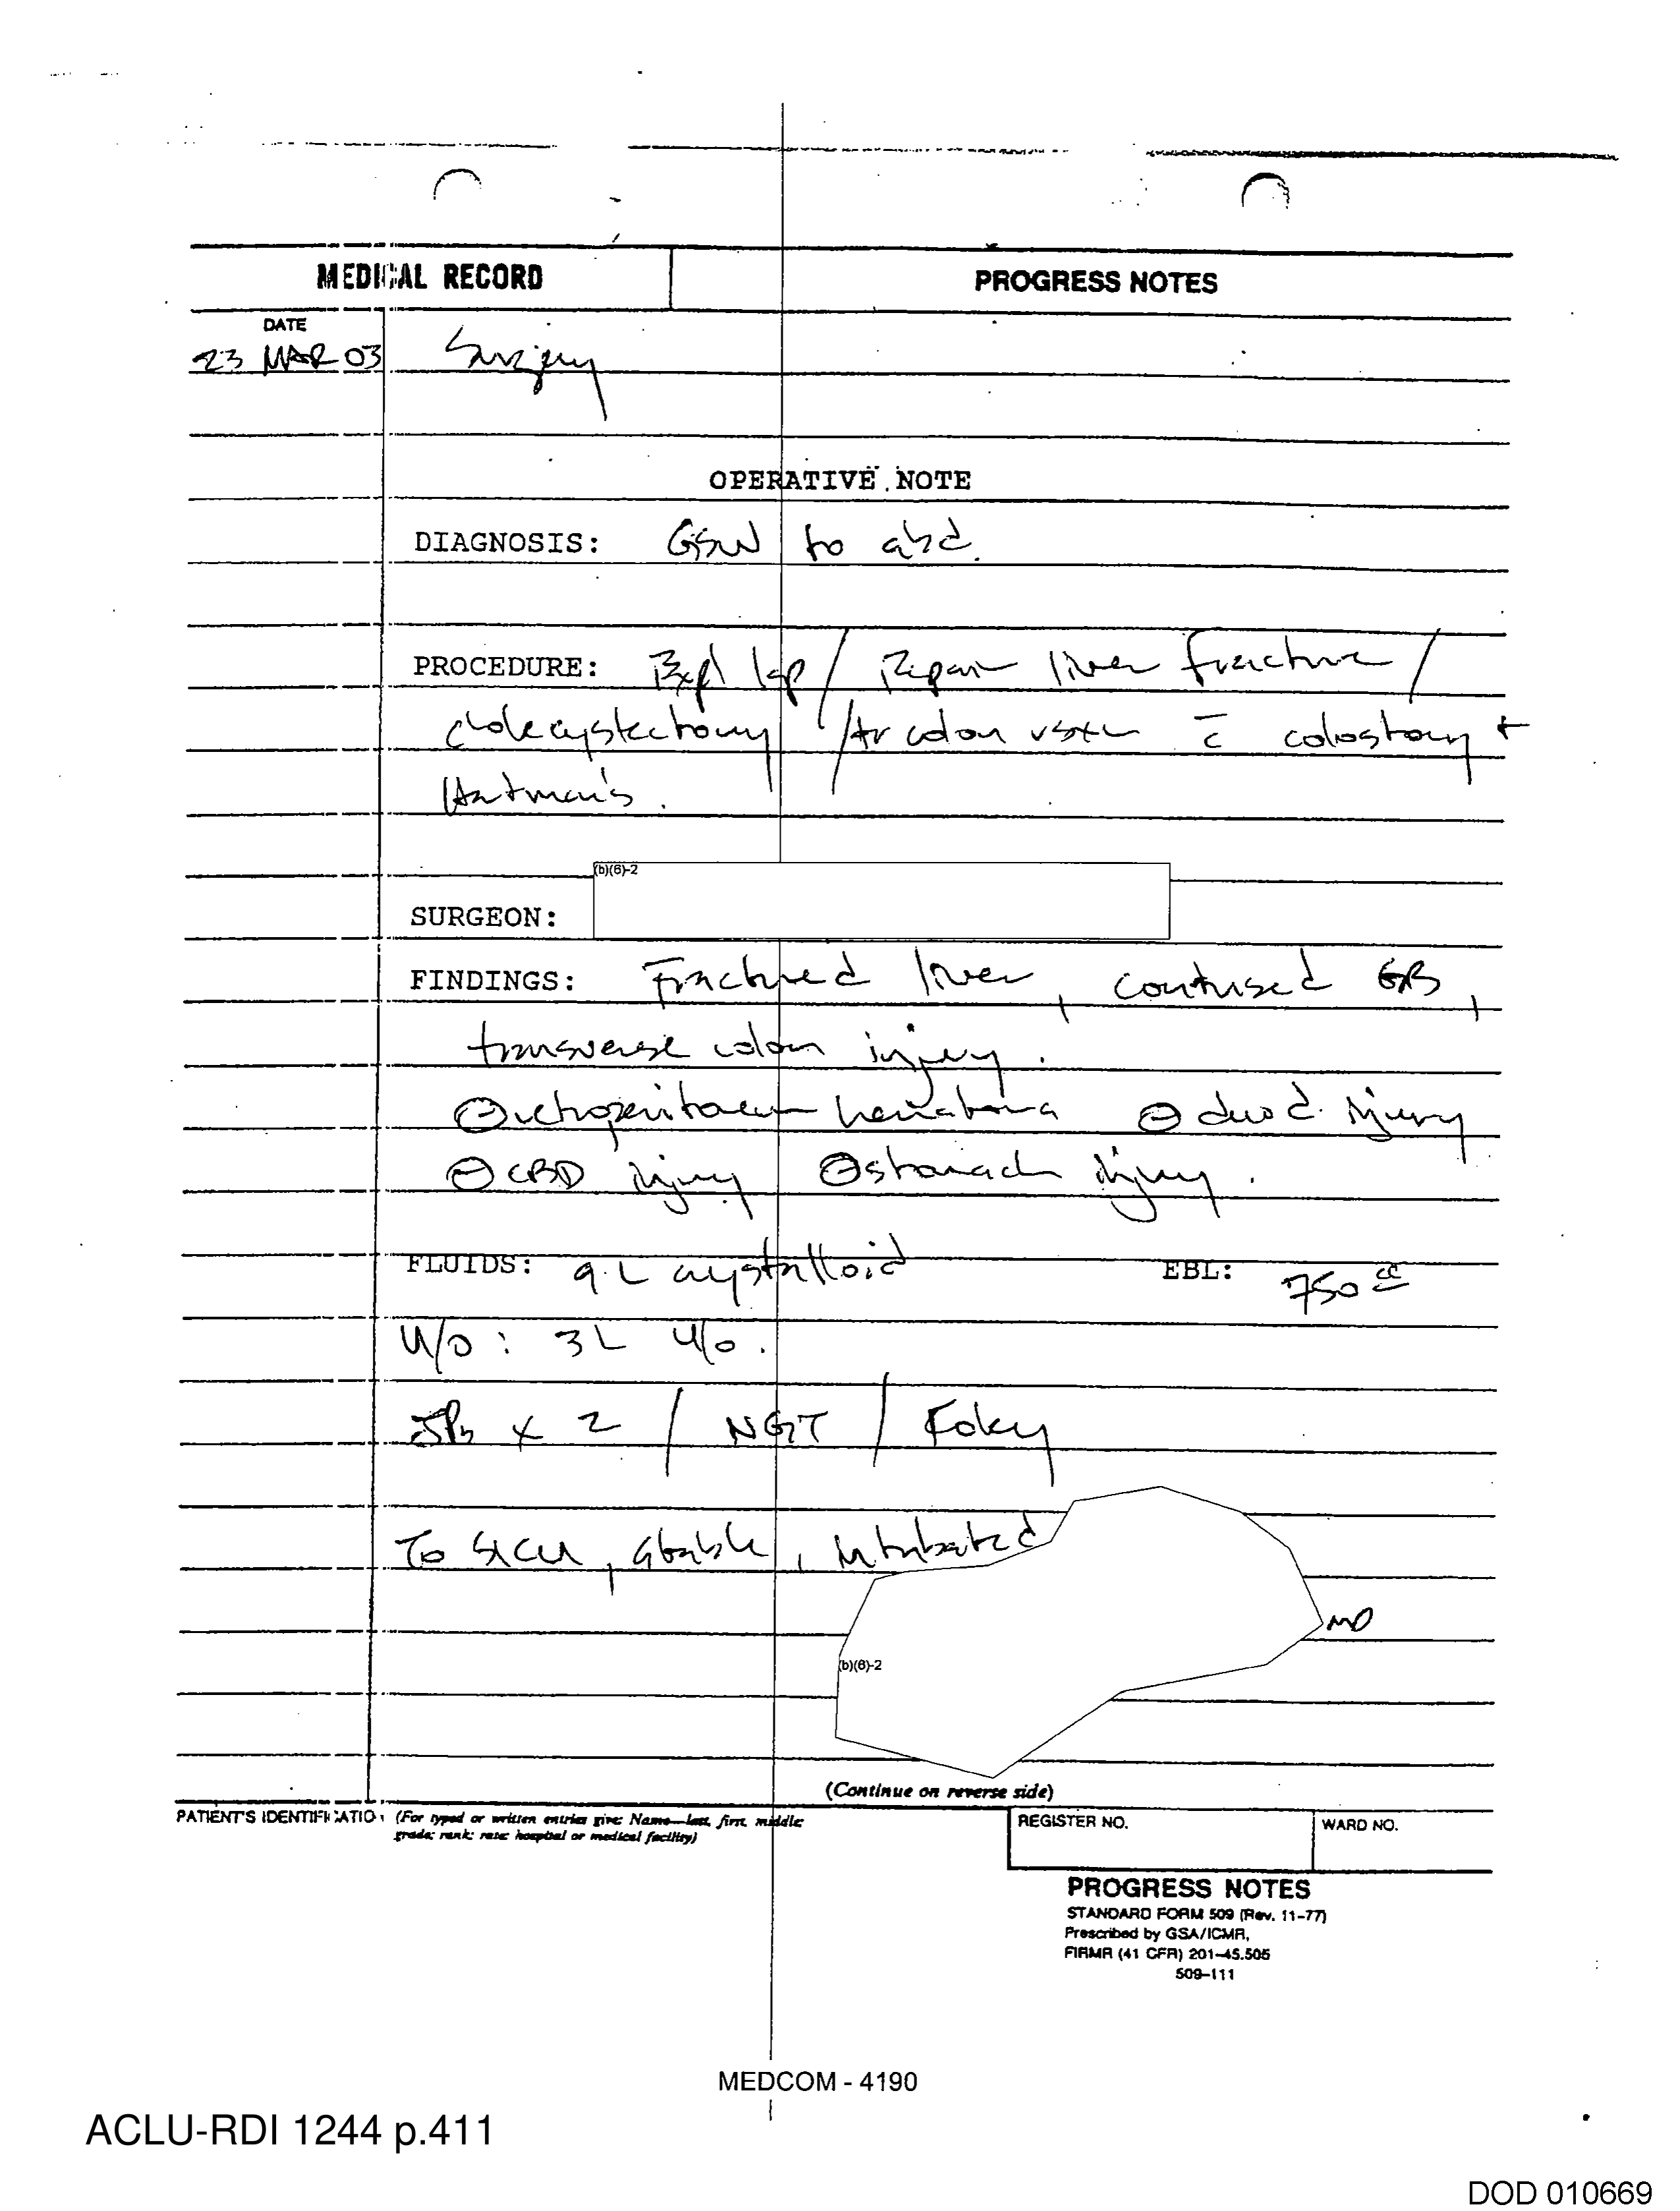 MEDICAL RECORD PROGRESS NOTES
DATE
23 MAR 03 Surgery
OPERATIVE NOTE
DIAGNOSIS: GSW to abd.
PROCEDURE: Expl lap / Repair liver fracture /
cholecystectomy / tr colon c̄ colostomy +
Hartman's.
(b)(6)-2
SURGEON:
FINDINGS: Fractured liver, contused GB,
transverse colon injury.
⊖ retroperitoneum hematoma ⊖ duod. injury
⊖ CBD injury ⊖ stomach injury.
FLUIDS: 9 L crystalloid EBL: 750 cc
U/O: 3 L u/o.
JPs x 2 / NGT / Foley
To SICU, stable, intubated
MD
(b)(6)-2
(Continue on reverse side)
PATIENT'S IDENTIFICATION (For typed or written entries give: Name—last, first, middle;
grade; rank; rate; hospital or medical facility)
REGISTER NO. WARD NO.
PROGRESS NOTES
STANDARD FORM 509 (Rev. 11-77)
Prescribed by GSA/ICMR,
FIRMR (41 CFR) 201-45.505
509-111
MEDCOM - 4190
ACLU-RDI 1244 p.411
DOD 010669